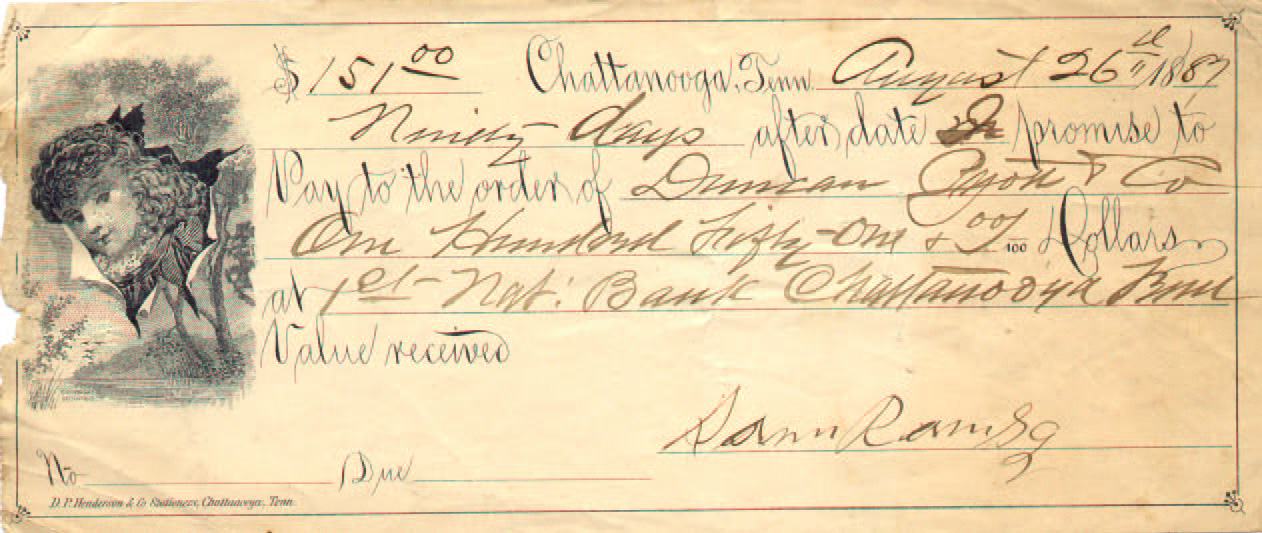 $ 151 00 Chattanooga, Tenn. August 26th 1887
Ninety days after date I promise to
Pay to the order of Duncan & Co
One Hundred Fifty-One & 00/100 Dollars
at 1st Nat. Bank Chattanooga Tenn
Value received
Sam Ramsey
No Due
D. P. Henderson & Co Stationers, Chattanooga, Tenn.